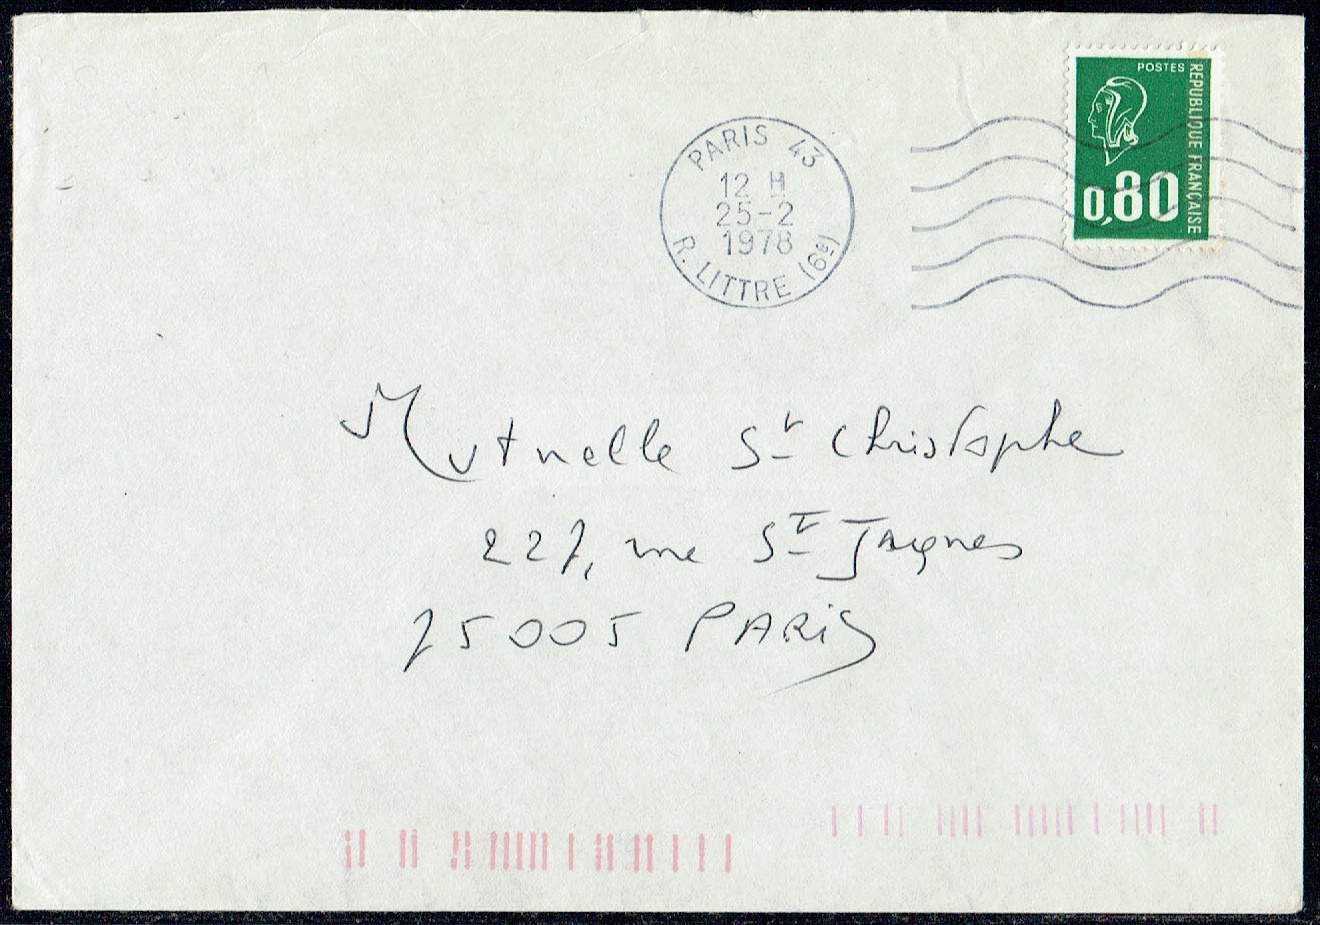 POSTES
REPUBLIQUE FRANÇAISE
0,80
PARIS 43
12 H
25-2
1978
R. LITTRE (6e)
Mutuelle St Christophe
227, rue St Jacques
75005 PARIS